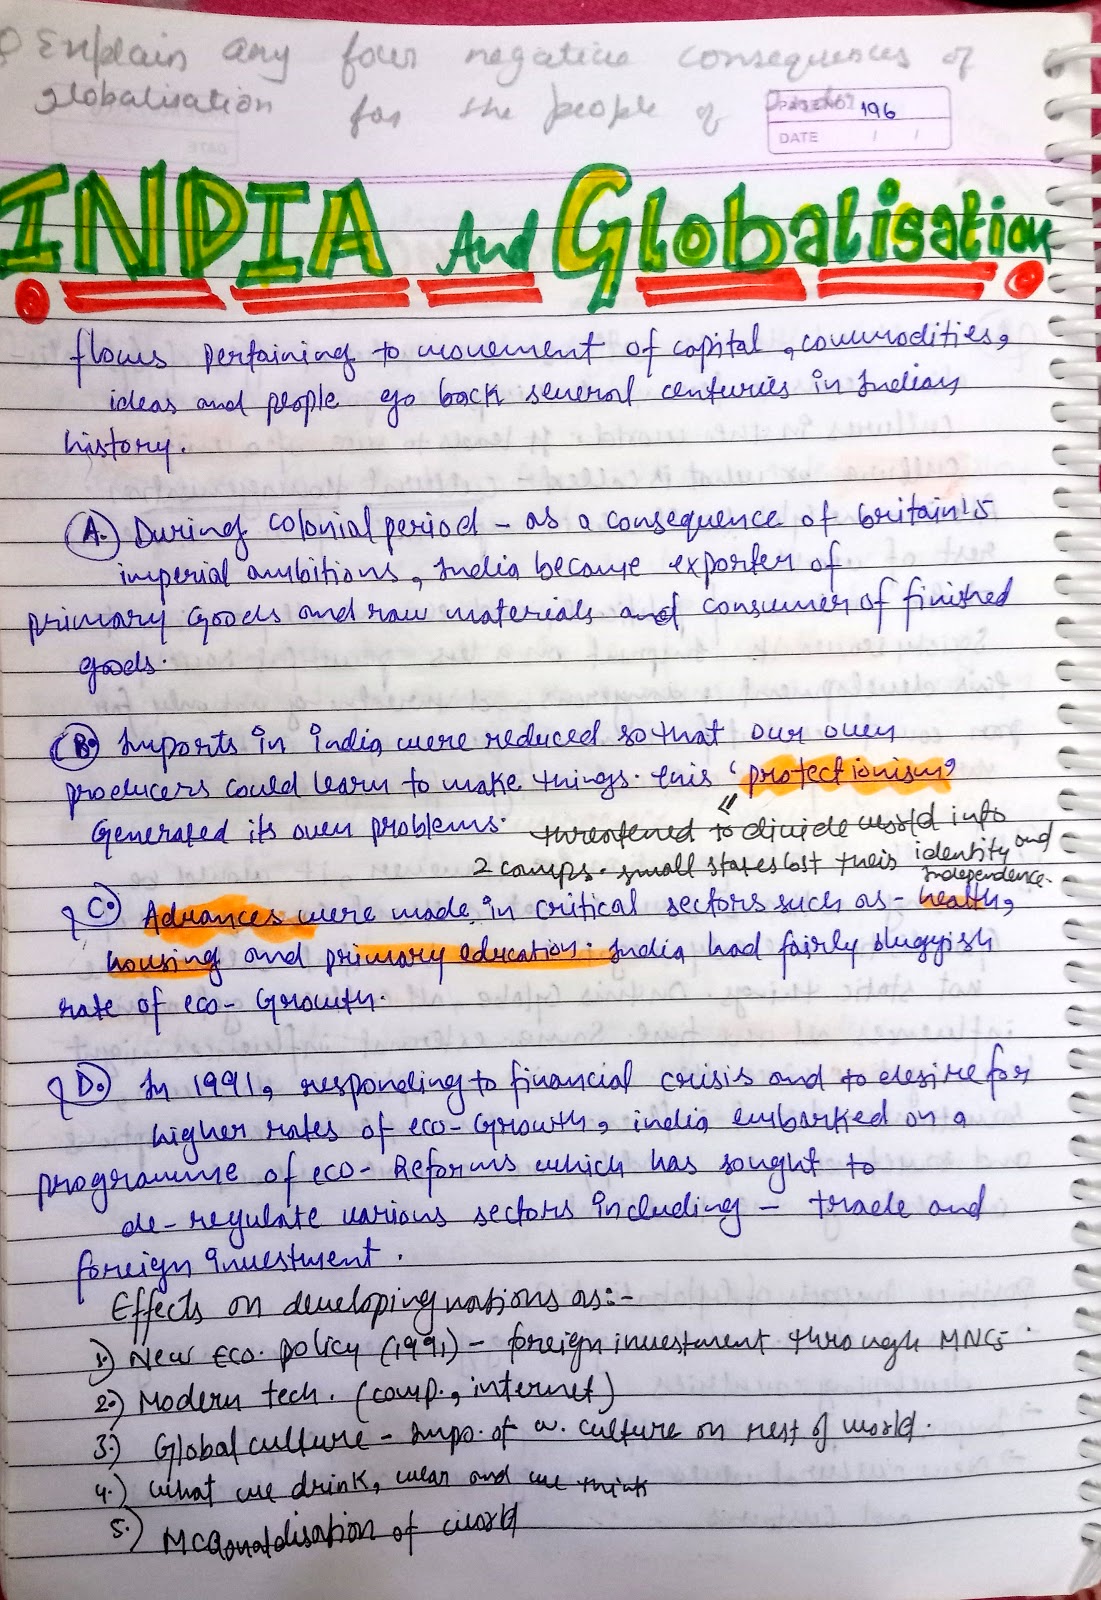 Q Explain any four negative consequences of
globalisation for the people of
PAGE NO: 196
DATE / /
INDIA And Globalisation
flows pertaining to movement of capital, commodities,
ideas and people go back several centuries in Indian
history.
(A.) During colonial period - as a consequence of britain's
imperial ambitions, India became exporter of
primary goods and raw materials and consumer of finished
goods.
(B.) Imports in india were reduced so that our own
producers could learn to make things. this 'protectionism'
Generated its own problems. threatened to divide world into
2 camps. small states lost their identity and
independence.
(C.) Advances were made in critical sectors such as - health,
housing and primary education. India had fairly sluggish
rate of eco- Growth.
(D.) In 1991, responding to financial crisis and to desire for
higher rates of eco-Growth, india embarked on a
programme of eco- Reforms which has sought to
de-regulate various sectors including - trade and
foreign investment.
Effects on developing nations as:-
1.) New Eco. policy (1991) - foreign investment through MNCs.
2.) Modern tech. (comp., internet)
3.) Global culture - Impo. of w. culture on rest of world.
4.) What we drink, wear and we think
5.) McDonaldisation of world